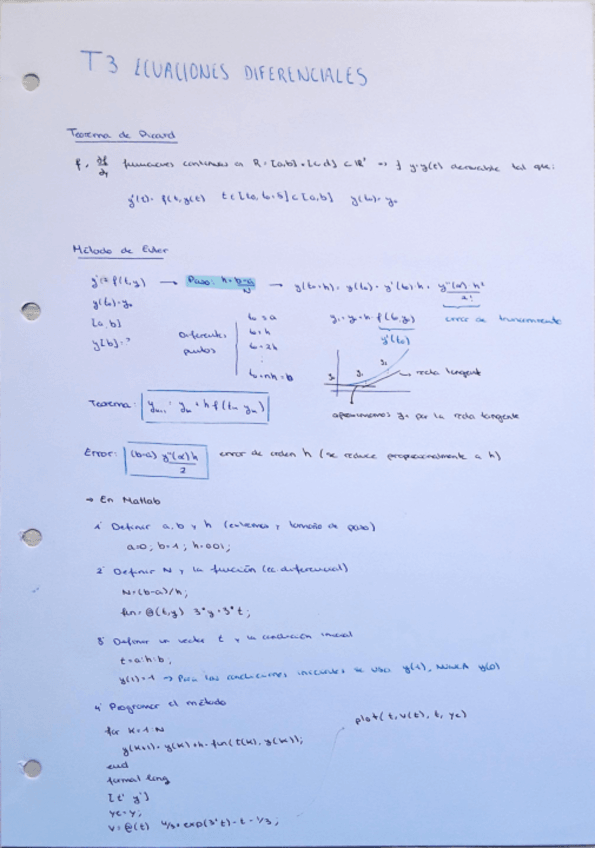 T3 ECUACIONES DIFERENCIALES
Teorema de Picard
f, ∂f/∂y funciones continuas en R = [a,b] × [c,d] ⊂ R² => ∃ y=y(t) derivable tal que:
y'(t) = f(t,y(t)) t ∈ [to, to+δ] ⊂ [a,b] y(to) = yo
Método de Euler
y' = f(t,y) → Paso: h = b-a/N → y(to+h) = y(to) + y'(to) h + y''(α) h²/2!
y(to) = yo
[a,b]
y(b) = ?
Diferentes puntos
to = a
to+h
to+2h
to+nh = b
y1 = yo + h f(to, yo)
y'(to)
error de truncamiento
yo y1 recta tangente
aproximamos y1 por la recta tangente
Teorema: yn+1 = yn + h f(tn, yn)
Error: (b-a) y''(α) h / 2 error de orden h (se reduce proporcionalmente a h)
→ En Matlab
1º Definir a, b y h (extremos y tamaño de paso)
a=0; b=1; h=0.01;
2º Definir N y la función (ec diferencial)
N=(b-a)/h;
fun=@(t,y) 3*y+3*t;
3º Definir un vector t y la condición inicial
t=a:h:b;
y(1)=1 → Para las condiciones iniciales se usa y(1), NUNCA y(0)
4º Programar el método
for k=1:N
y(k+1)=y(k)+h*fun(t(k),y(k));
end
format long
[t' y']
ye=y;
v=@(t) 4/3*exp(3*t)-t-1/3;
plot(t,v(t),t,ye)